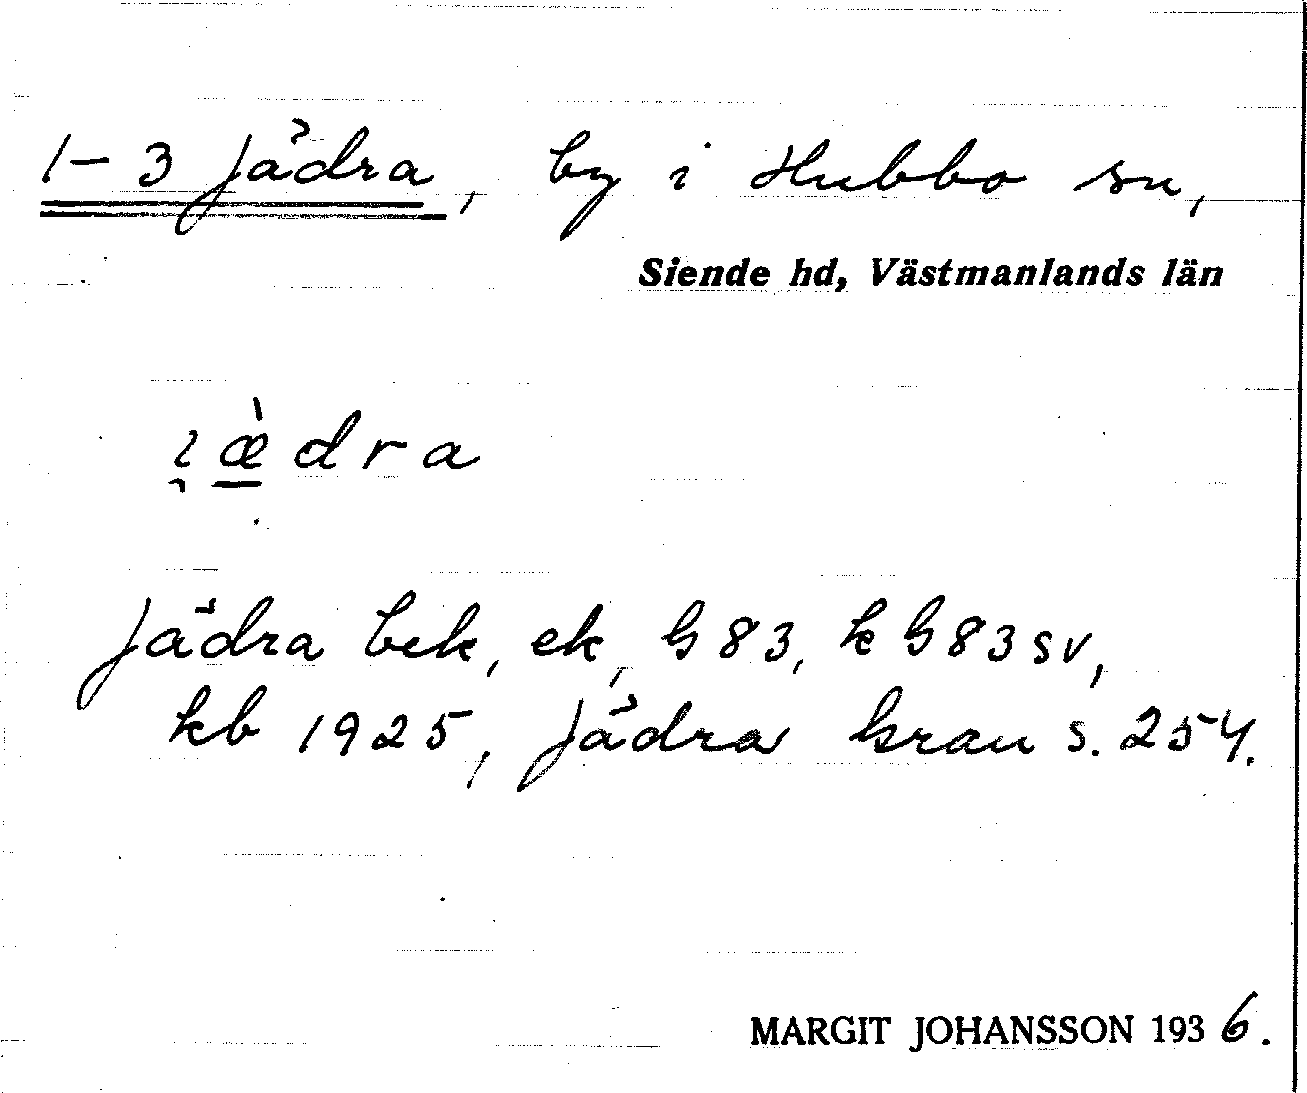 1-3 Jädra, by i Hubbo sn,
Siende hd, Västmanlands län
i̯æ̀dra
Jädra bek, ek, G 83, k G 83 sv,
kb 1925, Jädra Gran s. 254.
MARGIT JOHANSSON 1936.